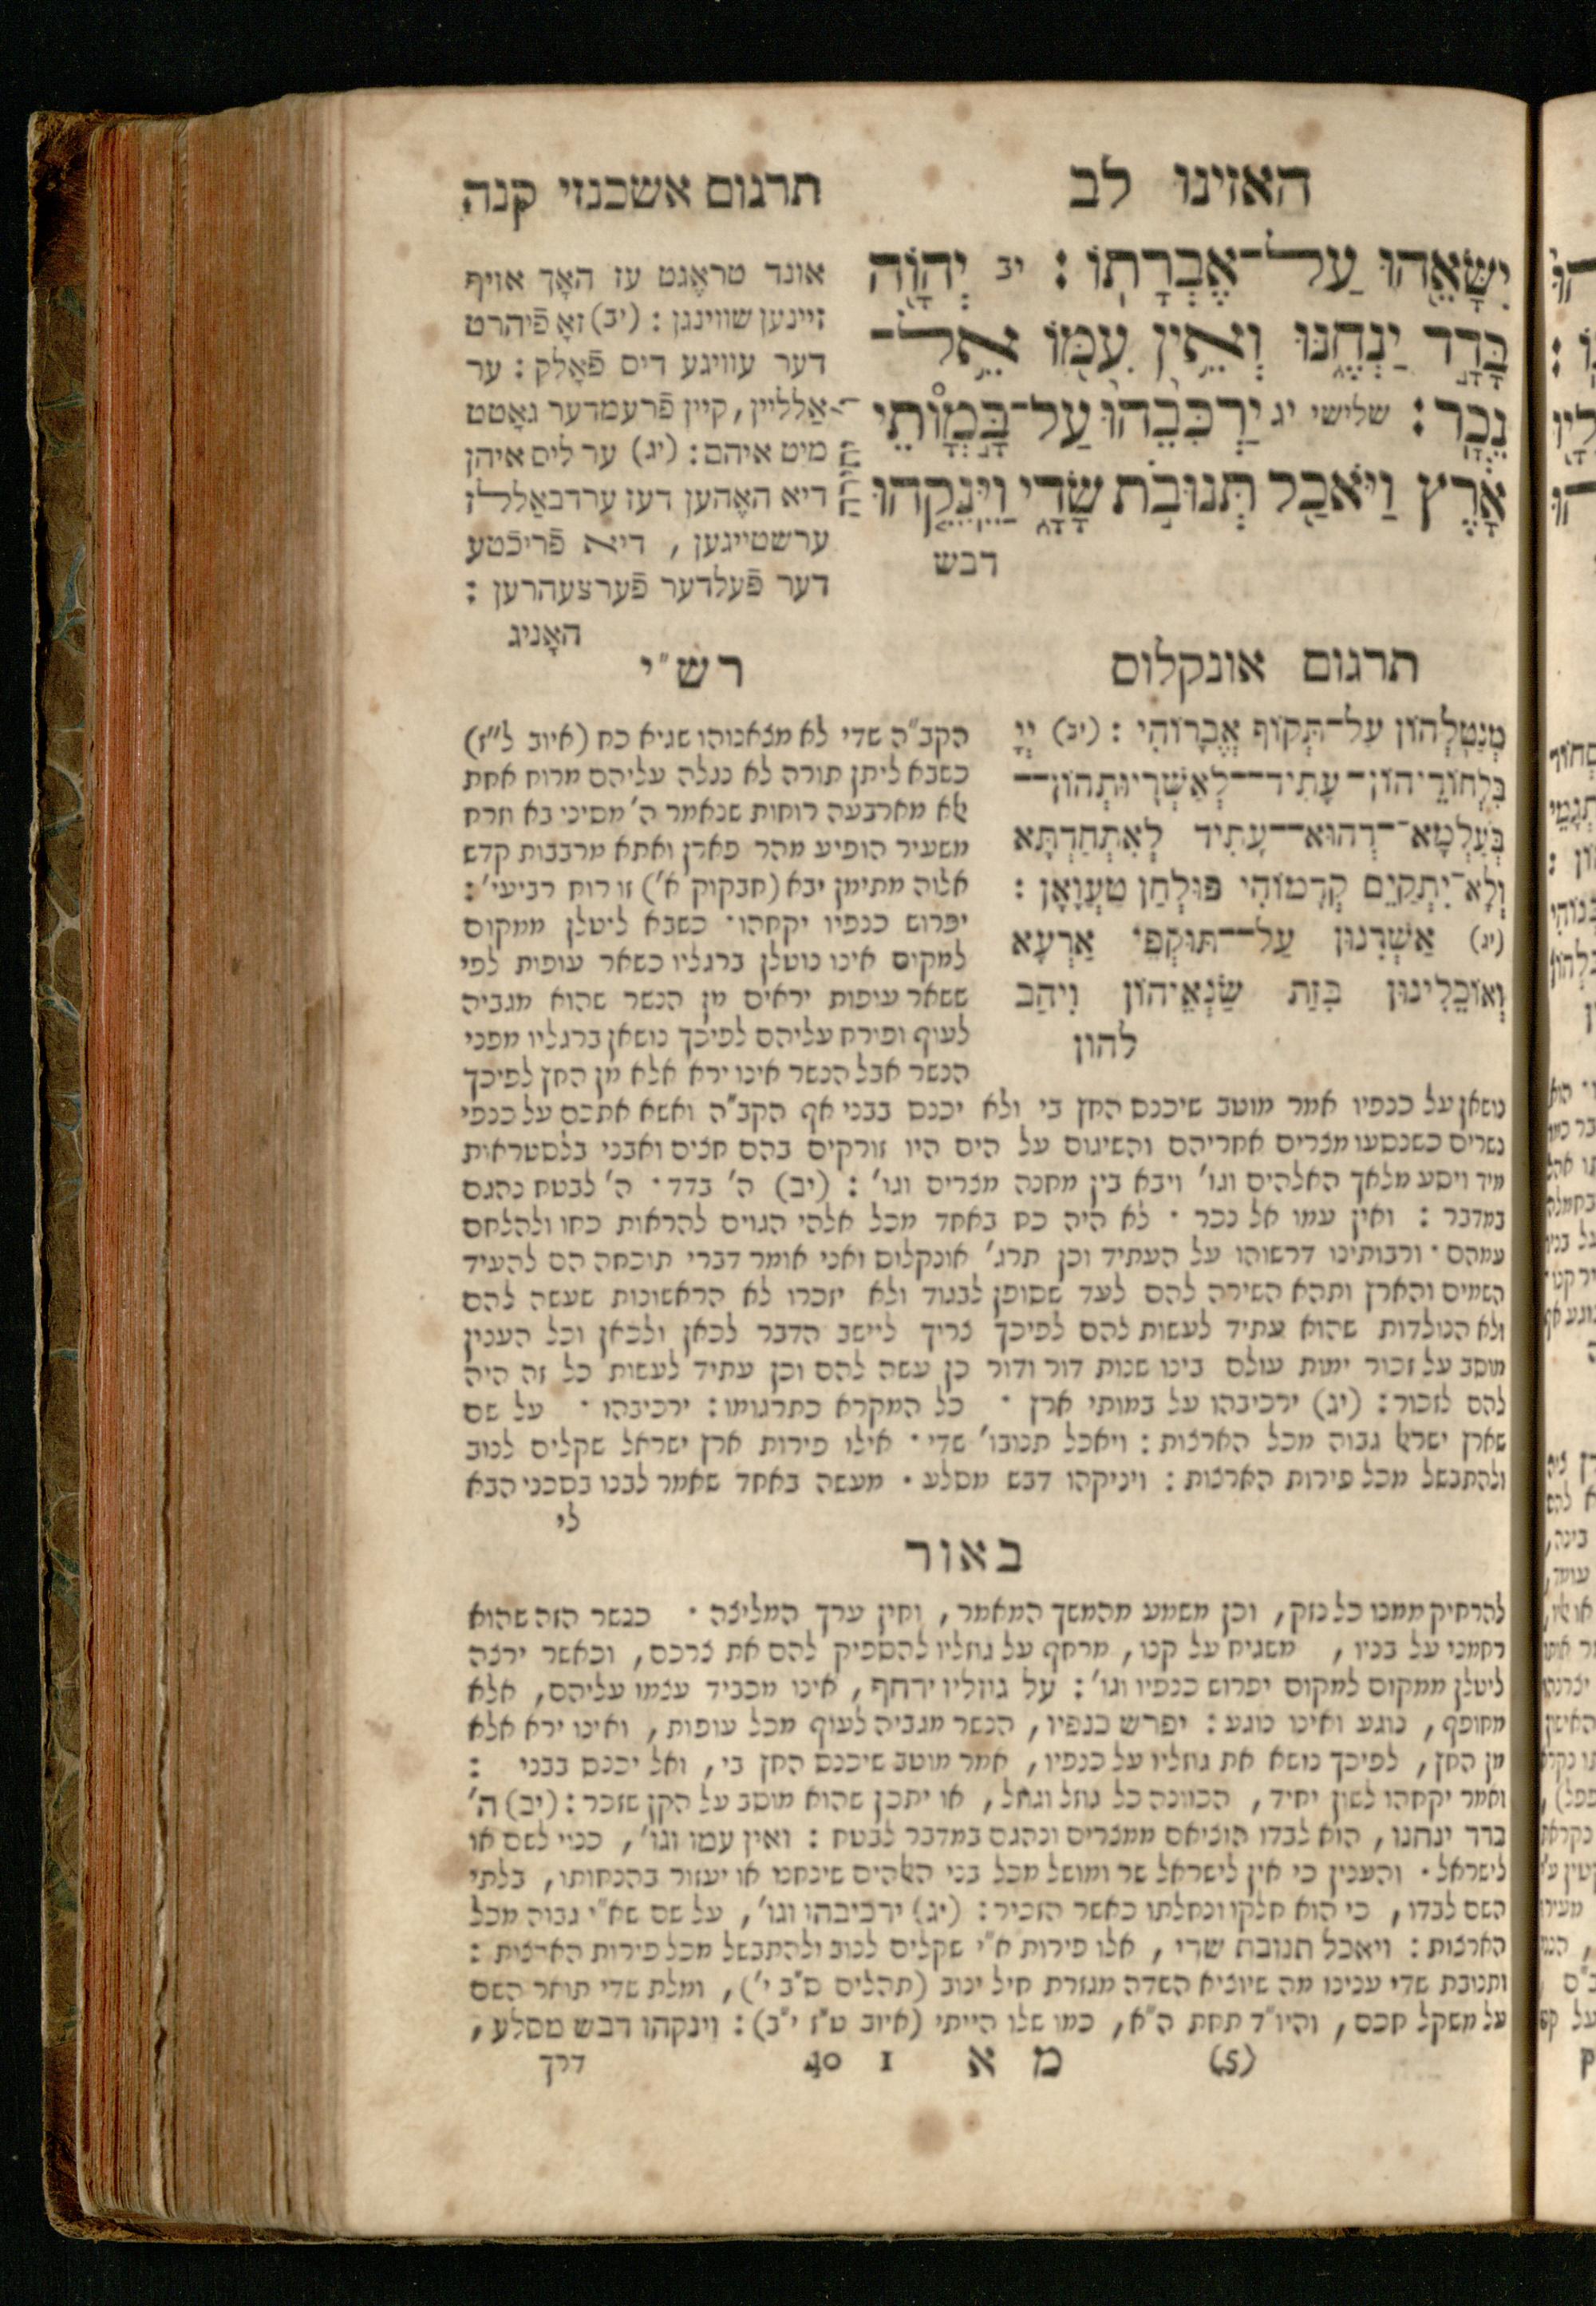 האזינו לב
תרגום אשכנזי קנה
יִשָּׂאֵהוּ עַל־אֶבְרָתוֹ : יב יְהֹוָה
בָּדָד יַנְחֶנּוּ וְאֵין עִמּוֹ אֵל־
נֵכָר : שלישי יג יַרְכִּבֵהוּ עַל־בָּמֳותֵי
אָרֶץ וַיֹּאכַל תְּנוּבֹת שָׂדָי וַיֵּנִקֵהוּ
דבש
אונד טראָגט עז האָך אויף
זיינען שווינגן : (יב) זאָ פֿיהרט
דער עוויגע דיס פֿאָלק : ער
אַלליין, קיין פֿרעמדער גאָטט
מיט איהם : (יג) ער ליס איהן
דיא האָהען דעז ערדבאַללז
ערשטייגען , דיא פֿריכֿטע
דער פֿעלדער פֿערצעהרען :
האָניג
תרגום אונקלוס
מְנַטַּלְהוֹן עַל־תְּקוֹף אֶבְרוֹהִי : (יב) יְיָ
בִּלְחוֹדֵיהוֹן־עָתִיד־לְאַשְׁרָיוּתְהוֹן־
בְּעַלְמָא־דְהוּא־עָתִיד לְאִתְחַדָּתָא
וְלָא־יִתְקַיֵּם קֳדָמוֹהִי פּוּלְחַן טַעֲוָאן :
(יג) אַשְׁרִנוּן עַל־תּוּקְפֵי אַרְעָא
וְאוֹכֵלִינוּן בִּזַּת שַׂנְאֵיהוֹן וִיהַב
להון
רש״י
הקב״ה שדי לא מצאנוהו שגיא כח (איוב ל״ז)
כשבא ליתן תורה לא נגלה עליהם מרוח אחת
אלא מארבעה רוחות שנאמר ה׳ מסיני בא וזרח
משעיר הופיע מהר פארן ואתא מרבבות קדש
אלוה מתימן יבא (חבקוק א׳) זו רוח רביעי׳ :
יפרוש כנפיו יקחהו · כשבא ליטלן ממקום
למקום אינו נוטלן ברגליו כשאר עופות לפי
ששאר עופות יראים מן הנשר שהוא מגביה
לעוף ופורח עליהם לפיכך נושאן ברגליו מפני
הנשר אבל הנשר אינו ירא אלא מן החץ לפיכך
נושאן על כנפיו אמר מוטב שיכנס החץ בי ולא יכנס בבני אף הקב״ה ואשא אתכם על כנפי
נשרים כשנסעו מצרים אחריהם והשיגום על הים היו זורקים בהם חצים ואבני בלסטראות
מיד ויסע מלאך האלהים וגו׳ ויבא בין מחנה מצרים וגו׳ : (יב) ה׳ בדד · ה׳ לבטח נהגם
במדבר : ואין עמו אל נכר · לא היה כח באחד מכל אלהי הגוים להראות כחו ולהלחם
עמהם · ורבותינו דרשוהו על העתיד וכן תרג׳ אונקלוס ואני אומר דברי תוכחה הם להעיד
השמים והארץ ותהא השירה להם לעד שסופן לבגוד ולא יזכרו לא הראשונות שעשה להם
ולא הנולדות שהוא עתיד לעשות להם לפיכך צריך ליישב הדבר לכאן ולכאן וכל הענין
מוסב על זכור ימות עולם בינו שנות דור ודור כן עשה להם וכן עתיד לעשות כל זה היה
להם לזכור : (יג) ירכיבהו על במותי ארץ · כל המקרא כתרגומו : ירכיבהו · על שם
שארץ ישראל גבוה מכל הארצות : ויאכל תנובו׳ שדי · אילו פירות ארץ ישראל שקלים לנוב
ולהתבשל מכל פירות הארצות : ויניקהו דבש מסלע · מעשה באחד שאמר לבנו בסכני הבא
לי
באור
להרחיק ממנו כל נזק, וכן משמע מהמשך המאמר, וחין ערך המליצה · כנשר הזה שהוא
רחמני על בניו, משגיח על קנו, מרחף על גוזליו להספיק להם את צרכם, וכאשר ירצה
ליטלן ממקום למקום יפרוש כנפיו וגו׳ : על גוזליו ירחף, אינו מכביד עצמו עליהם, אלא
מחופף, נוגע ואינו נוגע : יפרש כנפיו, הנשר מגביה לעוף מכל עופות, ואינו ירא אלא
מן החץ, לפיכך נושא את גוזליו על כנפיו, אמר מוטב שיכנס החץ בי, ואל יכנס בבני :
ואמר יקחהו לשון יחיד, הכוונה כל גוזל וגוזל, או יתכן שהוא מוסב על הקן שזכר : (יב) ה׳
בדד ינחנו, הוא לבדו הוציאם ממצרים ונהגם במדבר לבטח : ואין עמו וגו׳, כנוי לשם או
לישראל · והענין כי אין לישראל שר ומושל מכל בני האלהים שינחמו או יעזור בהנחותו, בלתי
השם לבדו, כי הוא חלקו ונחלתו כאשר הזכיר : (יג) ירכיבהו וגו׳, על שם שא״י גבוה מכל
הארצות : ויאכל תנובת שדי, אלו פירות א״י שקלים לנוב ולהתבשל מכל פירות הארצות :
ותנובת שדי ענינו מה שיוציא השדה מגזרת חיל ינוב (תהלים ס״ב י׳), ומלת שדי תואר השם
על משקל חכם, והיו״ד תחת ה״א, כמו שלו הייתי (איוב ט״ז י״ב) : וינקהו דבש מסלע,
דרך
(5) מא 1 40